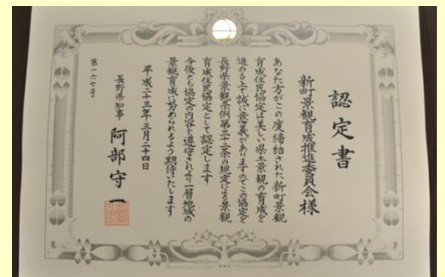 認定書
新町景観育成推進委員会様
あなた方がこの度締結された新町景観
育成住民協定は美しい県土景観の育成を
進める上で誠に意義がありますのでこの協定を
長野県景観条例第三十二条の規定による景観
育成住民協定として認定します
今後とも協定の内容を遵守されより一層地域の
景観育成に努められるよう期待いたします
平成二十三年三月二十四日
長野県知事 阿部守一
第一六七号